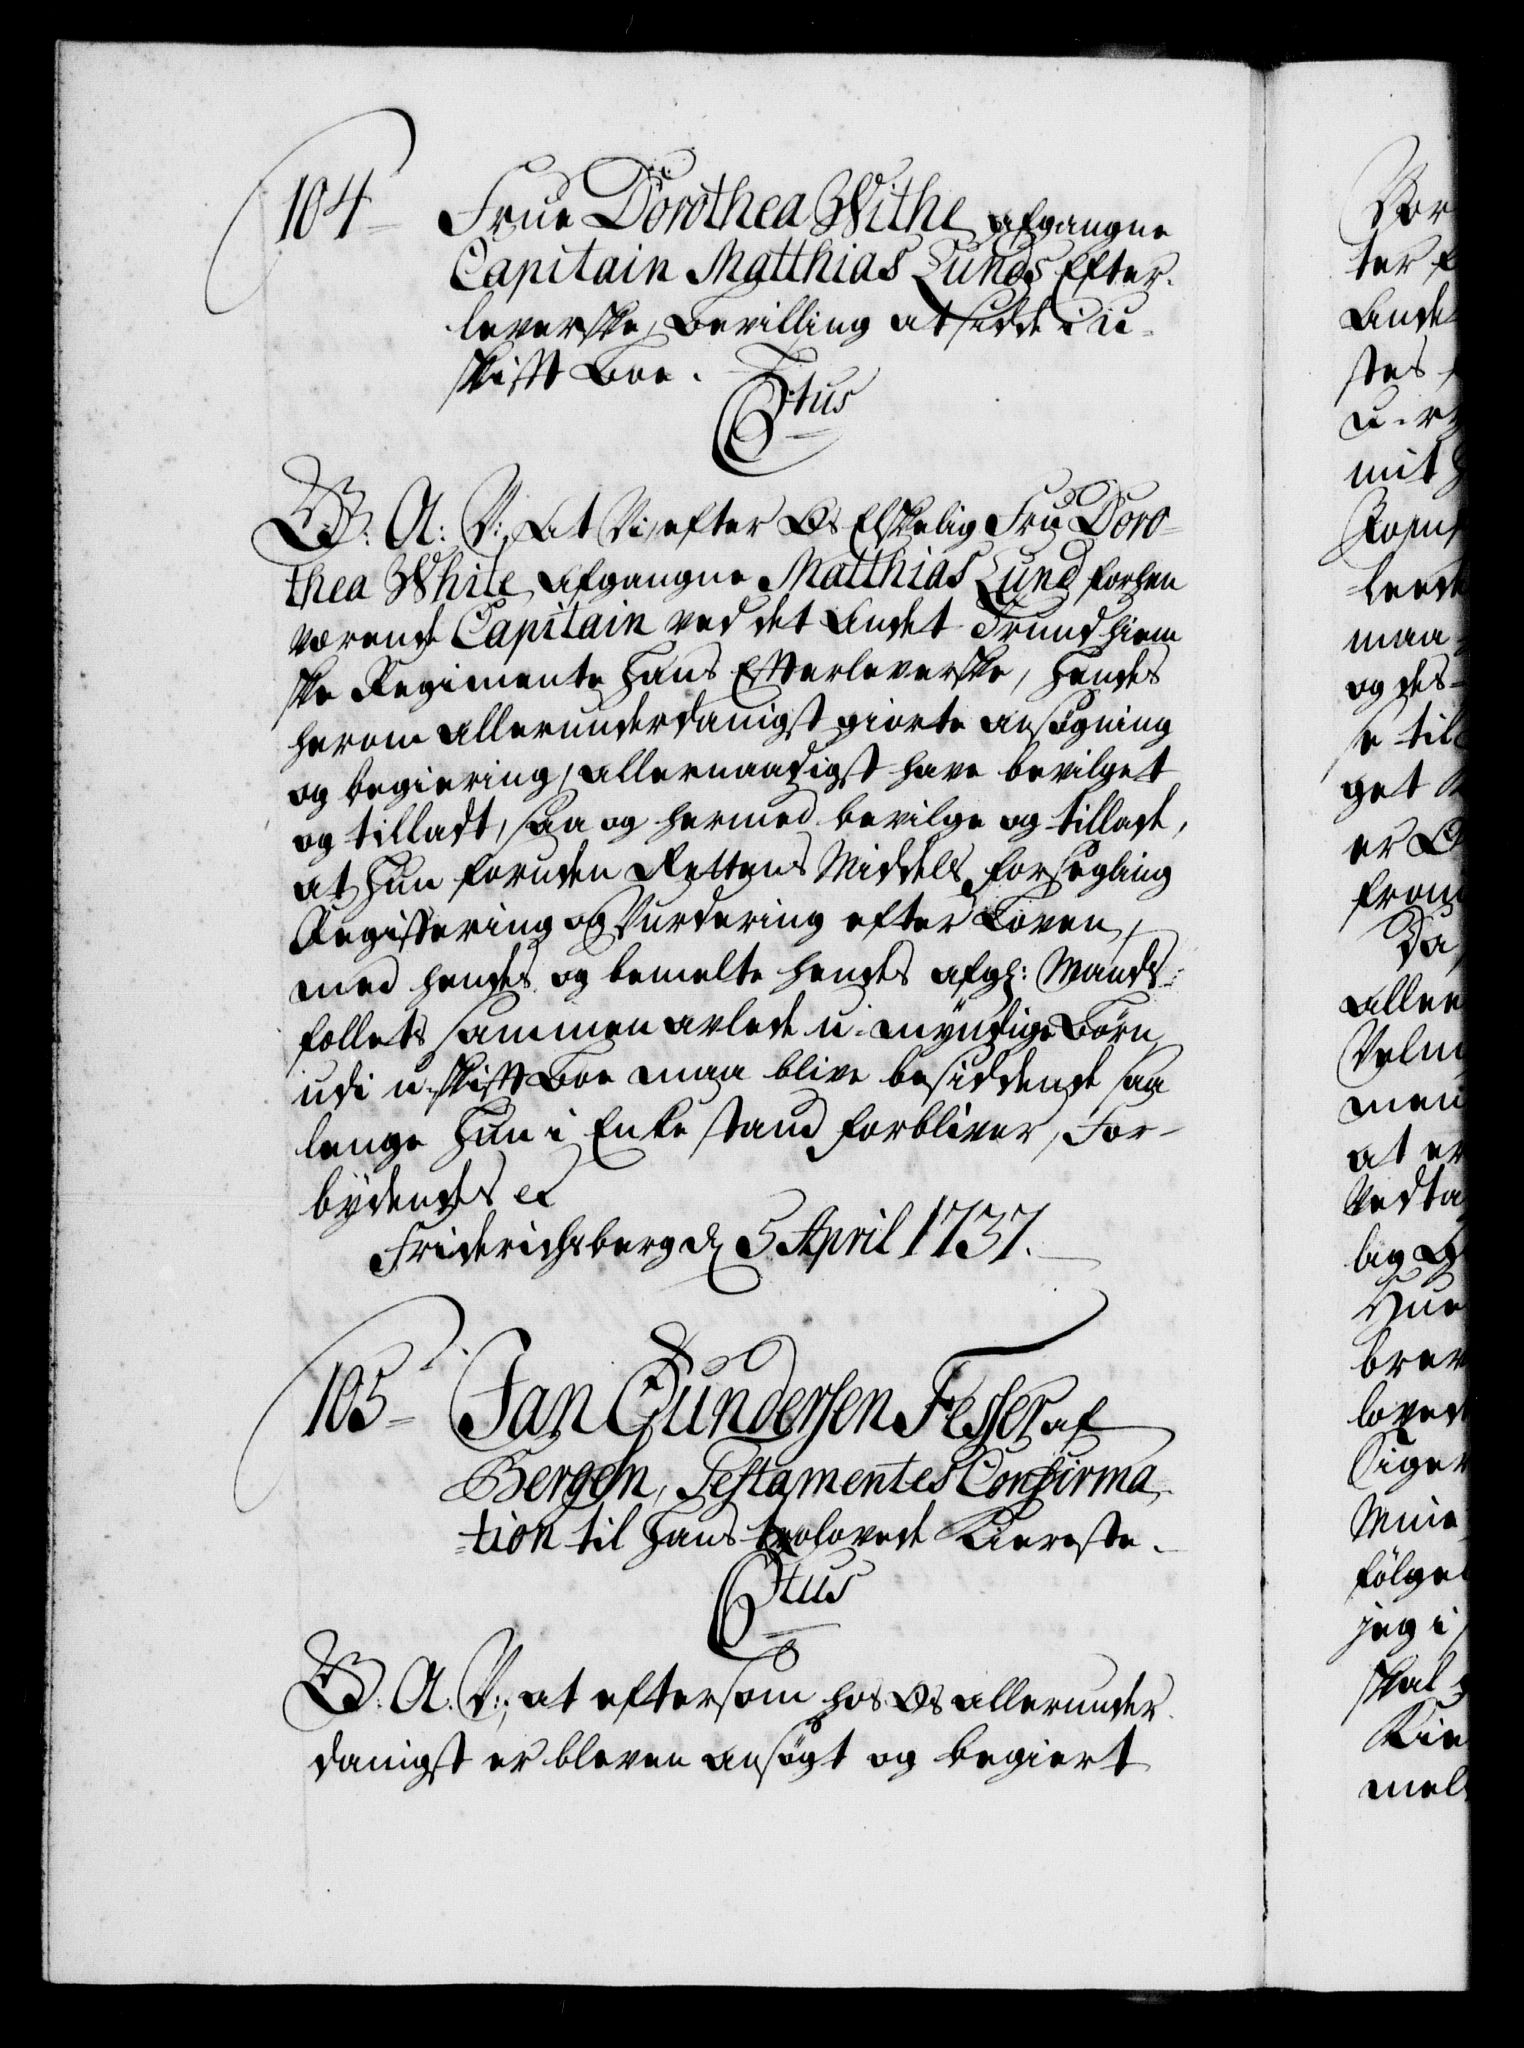 104
Frue Dorothea Withe afgangne
Capitain Matthias Lunds Efter-
leverske, Bevilling at sidde i u-
skift Boe.
C6tus
G: A: V:, At Vi efter Os Elskelig Fru Doro-
thea White, Afgangne Matthias Lund forhen
værende Capitain ved det Andet Trundhiem
ske Regimente Hans Efterleverske, hendes
herom allerunderdanigst giorte ansøgning
og begiering, allernaadigst have bevilget
og tilladt, saa og hermed bevilge og tillade,
at Hun foruden Rettens Middels forsegling
Registering og Vurdering efter Loven,
med hendes og bemelte hendes afgl: Mands
follets sammen avlede u-myndige Børn
udi u-skift Boe maa blive besiddende saa
lenge Hun i Enke stand forbliver, For-
bydendes &
Friderichsberg d. 5 April 1737.
105
Jan Gundersen Fesser af
Bergen, Testamentes Confirma-
tion til Hans trolovede Kiereste.
C6tus
G: A: V:, at eftersom hos Os allerunder-
danigst er bleven ansøgt og begiert